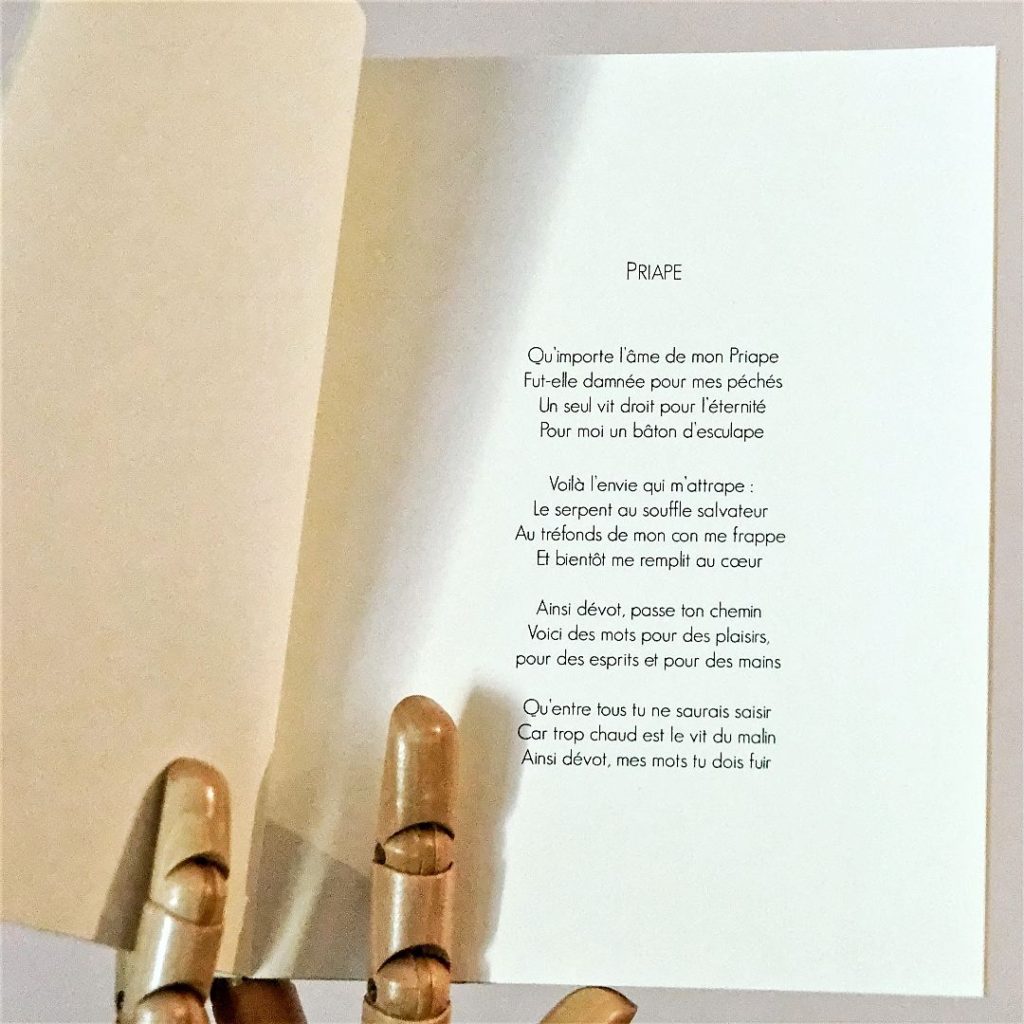 PRIAPE
Qu'importe l'âme de mon Priape
Fut-elle damnée pour mes péchés
Un seul vit droit pour l'éternité
Pour moi un bâton d'esculape
Voilà l'envie qui m'attrape :
Le serpent au souffle salvateur
Au tréfonds de mon con me frappe
Et bientôt me remplit au cœur
Ainsi dévot, passe ton chemin
Voici des mots pour des plaisirs,
pour des esprits et pour des mains
Qu'entre tous tu ne saurais saisir
Car trop chaud est le vit du malin
Ainsi dévot, mes mots tu dois fuir